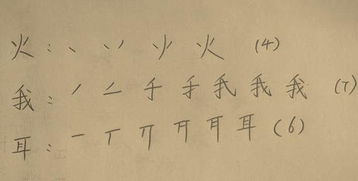 火：丶 丷 火 (4)
我：丿 二 千 手 我 我 我 (7)
耳：一 丅 丌 耳 (6)